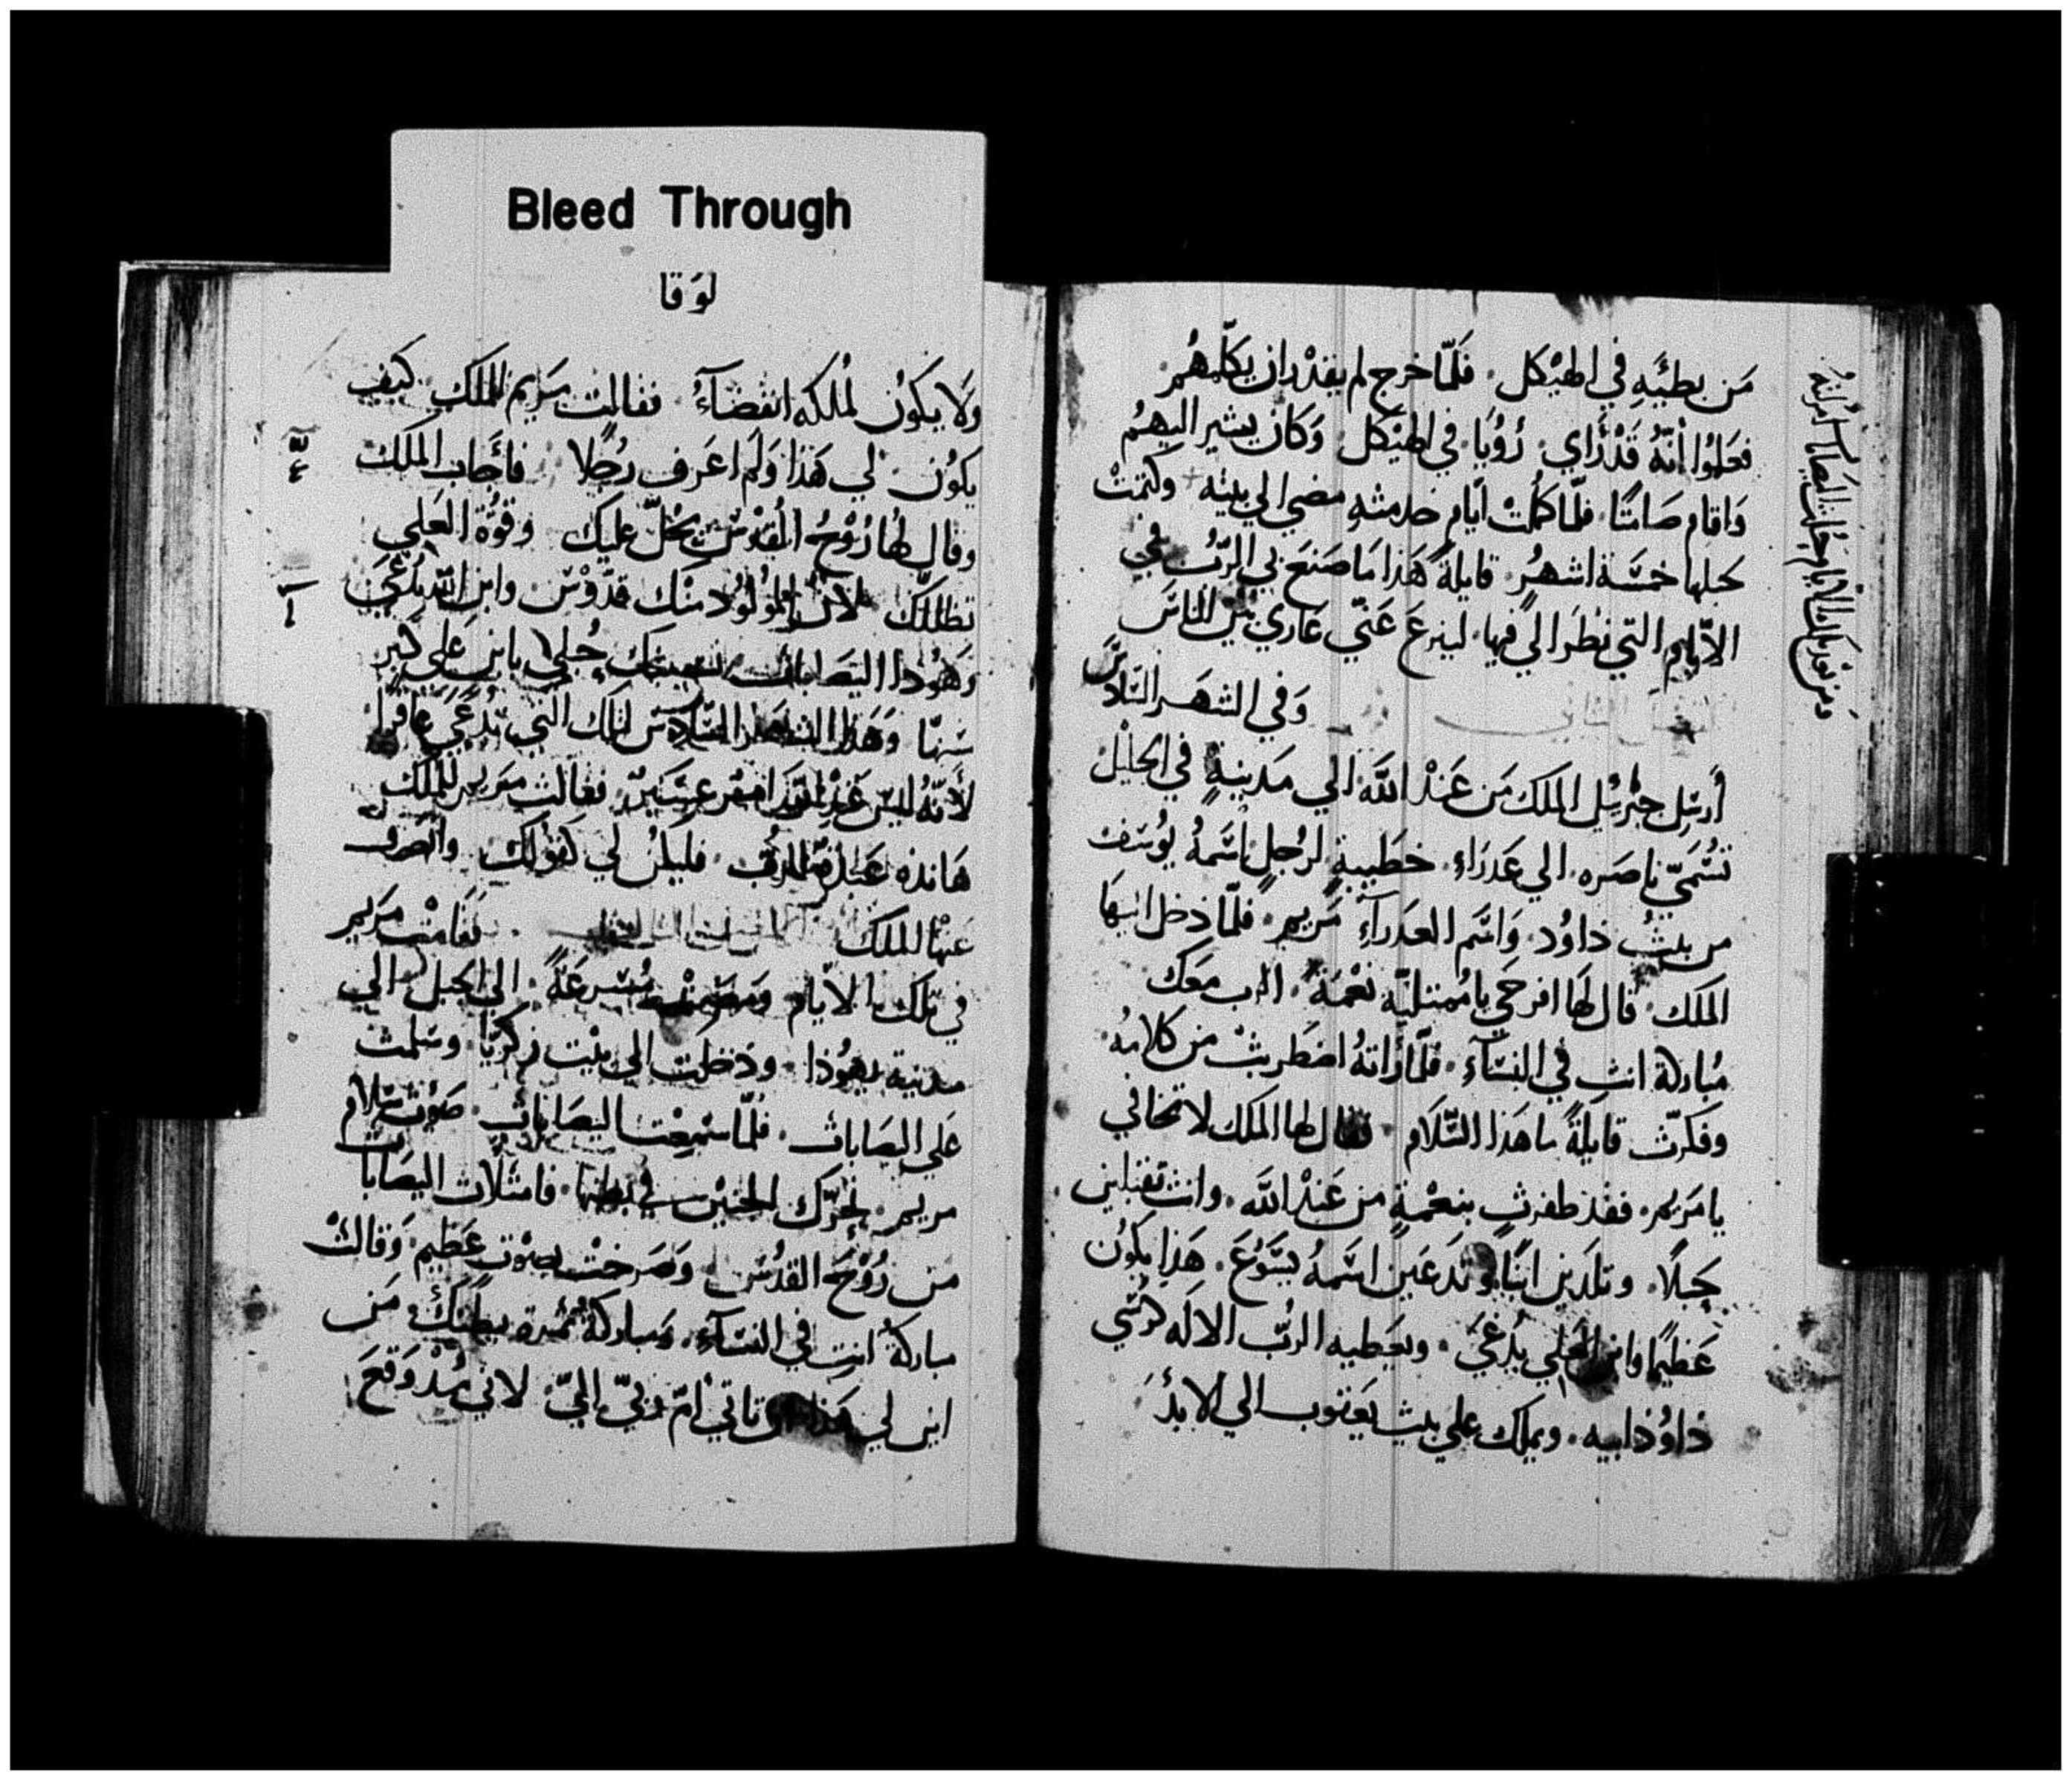 Bleed Through
لوقا
مَن بطئَهِ في الهيْكل. فَلمّا خرج لم يقدْر ان يكلّمهُم
فعَلمُوا أنّهُ قَدْ رَأي رُؤيَا في الهيْكل وَكانَ يشير اليهمُ
وَاقام صَامتًا. فلمّا كمُلتْ ايّام خدمتهِ مضي الي بيته وكتمَتْ
حبلها خمسَة اشهُرٍ قايلةً هَذا مَا صَنعَ بي الرّبُ في
الاّيام التي نظَر اليّ فيها. لينزعَ عَنّي عَاري بَيْن النّاسَ
وَفي الشهَر السّادسّ
أُرسِل جبْرئِيل الملَك مَن عَندْ اللّهَ الي مَدينةٍ في الجليْل
تسُمّيَ ناصَره. الي عَدرَاء خطَيبةٍ لرُجلٍ اسَمهُ يوُسَف
من بيتْ داوُد وَاسَم العدَراءَ مَريم. فلمّا دخل اليهَا
الملَك. قال لهَا افرحَي يا مُمتليّه نعْمَةً. الرب معَك
مُباركة انتِ في النسَآء. فلمّا رَاتهُ اضطَربتْ من كلامهُ
وفكرّت قايلةً ما هَذا السّلاَم فقال لها الملَك لا تخافي
يا مَريم. فقدْ ظفرتِ بنعْمةٍ من عَندْ اللّه. وانتِ تقبلين
حَبلًا. وتلدَين ابنًا وَتدعَين اسَمهُ يسَوُعَ. هَذا يكوُن
عَظيمًا وابن العَلي يدُعيَ. ويعَطيه الربّ الالَه كرسّي
داوُد ابيه. ويملك علي بيت يَعقوب الي الابدَ
ومن بعد تلك الايام حبلت اليصابات امرأتهُ
وَلاَ يكوَنُ لمُلكه انقضَآءُ فقالت مَريم للملَك كيَف
يكوُن لي هَذا وَلم اعَرف رجُلا فأجَاب الملَك
وقال لهَا رُوْحُ القدُسْ يحَلّ عليَك وقوُة العَلي
تظللّك لانّ المُولوُد منْك قدّوْسَ وابن اللّه يدُعَي
وَهوُذا اليَصَابات نسيبتك حُبلي بابنٍ علي كبر
سَنهّا وَهَذا الشهر السّادسَ لتلك التي تدُعَيَ عاقرًا
لأنهّ ليسَ عَندْ اللّه امرٌ عسَيرٌ فقالت مَريم للملَك
هَانذه عَبْدة الرّب فليكنُ لي كقوْلك وانصرف
عنهْا الملَك فقامَت مَريم
في تلَك الايّام وَمَضَت مُسَرعَةً الي الجبل الي
مدَينة يهوُذا. ودَخلت الي بيْت زكَريّا وسَلمت
عَلي اليصَابات. فلمّا سَمعت اليصَابات صَوْت سَلام
مريم تحَرّك الجنيْن في بطنها. فامتلأت اليصَابات
من رُوْحَ القدُسْ وَصَرخت بصوْت عَظيم وَقالت
مباركةُ انتِ في النسَآءِ. وَمباركةُ ثمرة بطَنكْ. مَن
اين لي هَذا ان تاتي امّ ربّي اليّ لاني مُنذْ وَقعَ